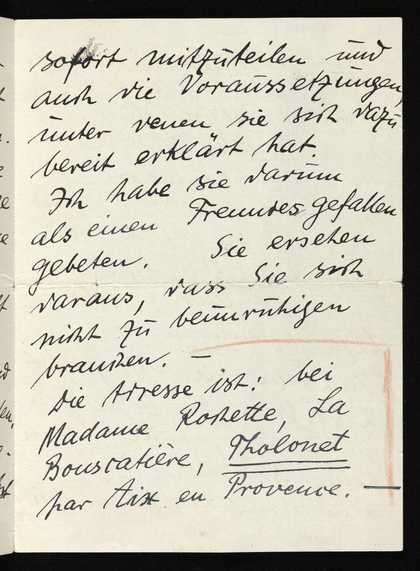 sofort mitzuteilen und
auch die Voraussetzungen,
unter denen sie sich dazu
bereit erklärt hat.
Ich habe sie darum
als einen Freundesgefallen
gebeten. Sie ersehen
daraus, dass Sie sich
nicht zu beunruhigen
brauchen. —
Die Adresse ist: bei
Madame Rosette, La
Bouscatière, Tholonet
par Aix en Provence. —